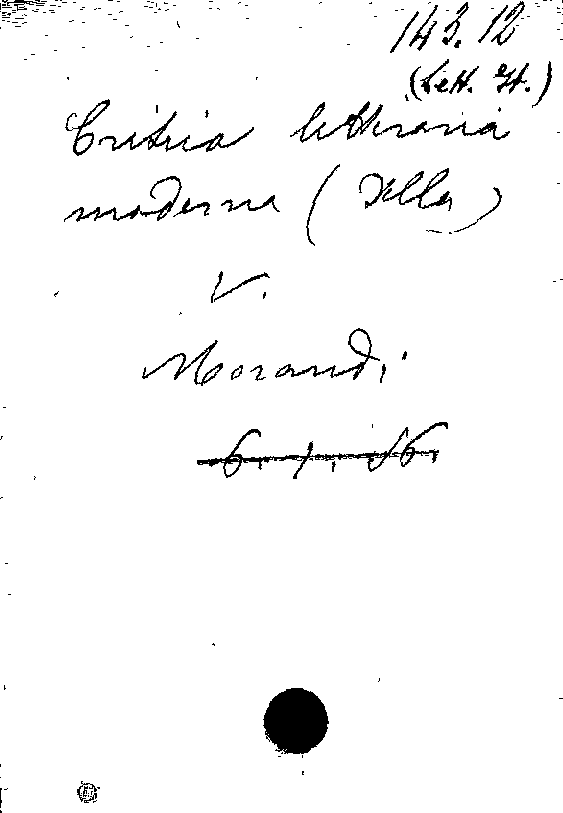 143.12
(Lett. It.)
Critica letteraria
moderna (Della)
V.
Morandi
6. 1. 86.